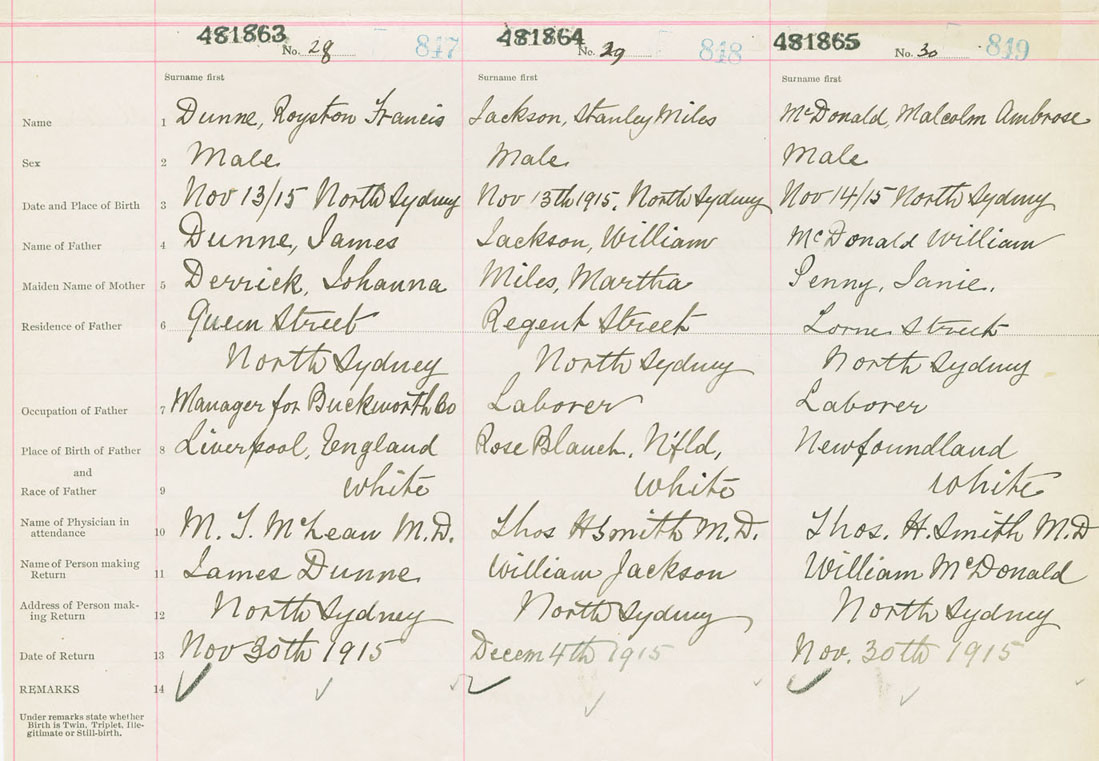 481863 No. 28 847 481864 No. 29 848 481865 No. 30 849
Surname first Surname first Surname first
Name 1 Dunne, Royston Francis Jackson, Stanley Miles McDonald, Malcolm Ambrose
Sex 2 Male Male Male
Date and Place of Birth 3 Nov 13/15 North Sydney Nov 13th 1915. North Sydney Nov 14/15 North Sydney
Name of Father 4 Dunne, James Jackson, William McDonald William
Maiden Name of Mother 5 Derrick, Johanna Miles, Martha Penny, Janie.
Residence of Father 6 Queen Street Regent Street Lorne Street
North Sydney North Sydney North Sydney
Occupation of Father 7 Manager for Buckworth Co Laborer Laborer
Place of Birth of Father 8 Liverpool, England Rose Blanch, N'fld, Newfoundland
and
Race of Father 9 White White White
Name of Physician in
attendance 10 M. T. McLean M.D. Thos H Smith M.D. Thos. H. Smith M.D
Name of Person making
Return 11 James Dunne William Jackson William McDonald
Address of Person mak-
ing Return 12 North Sydney North Sydney North Sydney
Date of Return 13 Nov 30th 1915 Decem 4th 1915 Nov. 30th 1915
REMARKS 14
Under remarks state whether
Birth is Twin, Triplet, Ille-
gitimate or Still-birth.